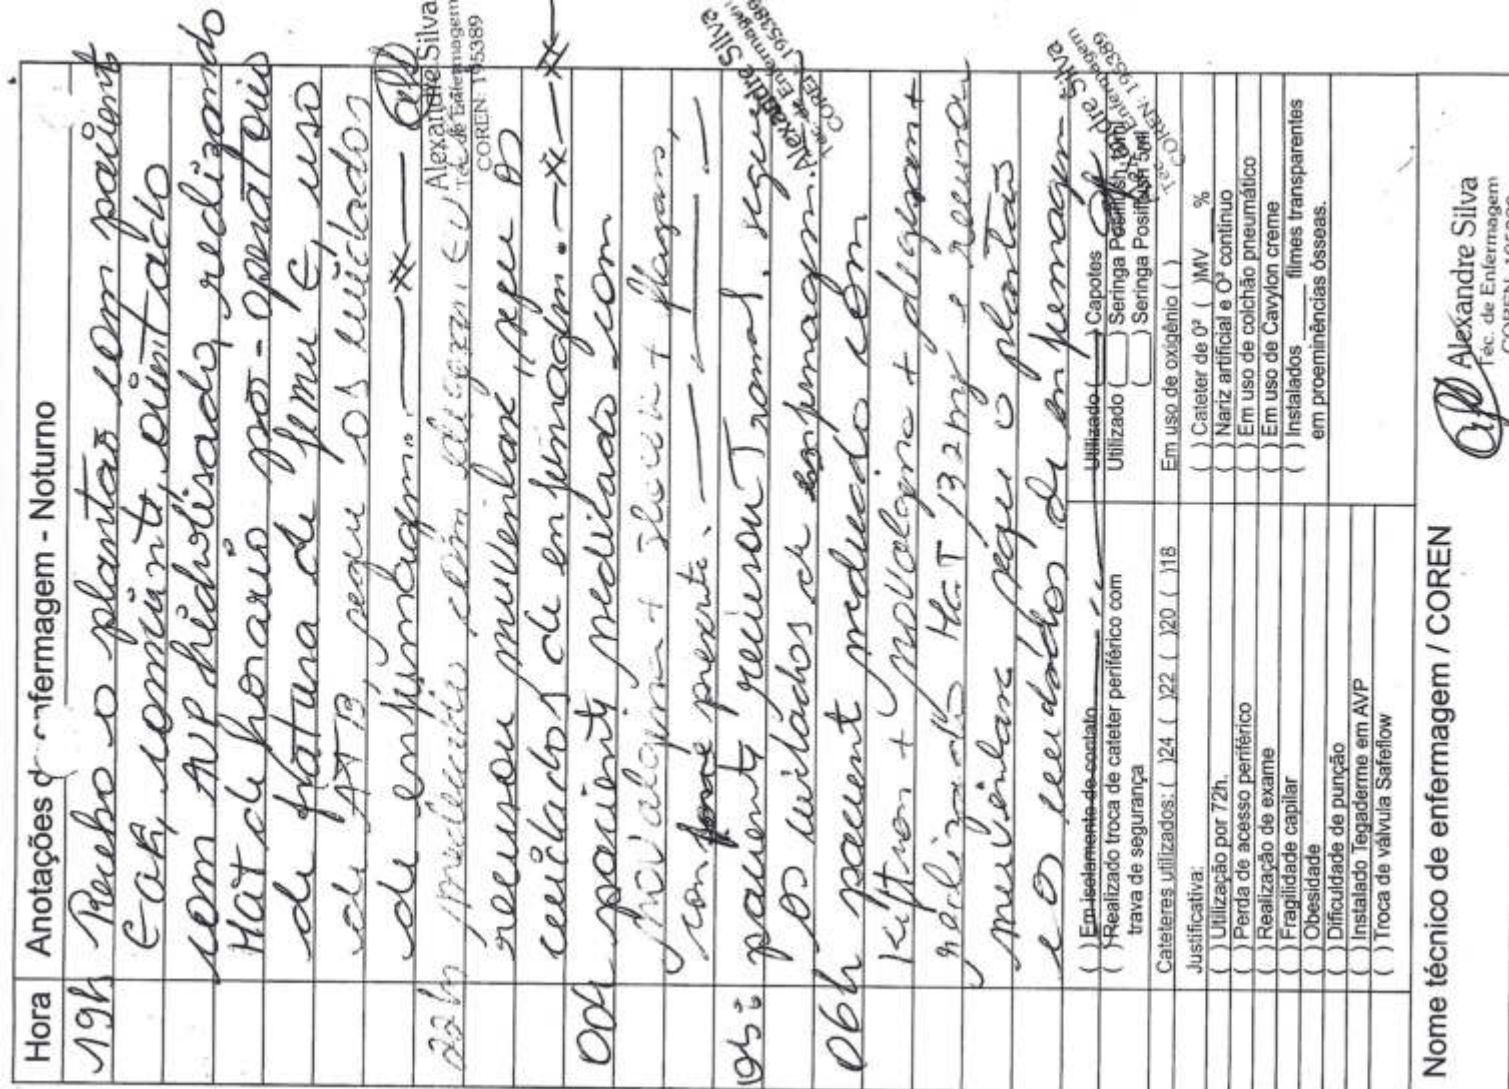 Hora Anotações de enfermagem - Noturno
19h Recebo o plantão com pacient
calm, consciente, orientado
com AVP hidrolisado, realizando
HGT de horario pós-operatoio
de fratura de femu E, uso
de ATB, segue os cuidados
de enfermagm.
Alexandre Silva
Téc. de Enfermagem
COREN: 195389
22h medicado com
recusou muvenlax, segue os
cuidados de enfermagm.
00h pacienty medicado com
novalgina + plasil + flagyl,
conforme prescrito.
Alexandre Silva
Téc. de Enfermagem
COREN: 195389
05: pacienty recusou Tramal, segue
os cuidados de enfermagm.
06h pacient medicado com
Keflton + Novalgina + digesant
realizado HGT 132mg e recusou
muvinlax segue o plantão
e os cuidados de enfermagm
Alexandre Silva
Téc. Enfermagem
COREN: 195389
( ) Em isolamento de contato
( ) Realizado troca de cateter periférico com
trava de segurança
Cateteres utilizados: ( )24 ( )22 ( )20 ( )18
Justificativa:
( ) Utilização por 72h.
( ) Perda de acesso periférico
( ) Realização de exame
( ) Fragilidade capilar
( ) Obesidade
( ) Dificuldade de punção
( ) Instalado Tegaderme em AVP
( ) Troca de válvula Safeflow
Utilizado ( ) Capotes
Utilizado ( ) Seringa Posiflush 10ml
( ) Seringa Posiflush 5ml
Em uso de oxigênio ( )
( ) Cateter de 0² ( )MV %
( ) Nariz artificial e O² continuo
( ) Em uso de colchão pneumático
( ) Em uso de Cavylon creme
( ) Instalados filmes transparentes
em proeminências ósseas.
Nome técnico de enfermagem / COREN
Alexandre Silva
Téc. de Enfermagem
COREN: 195389